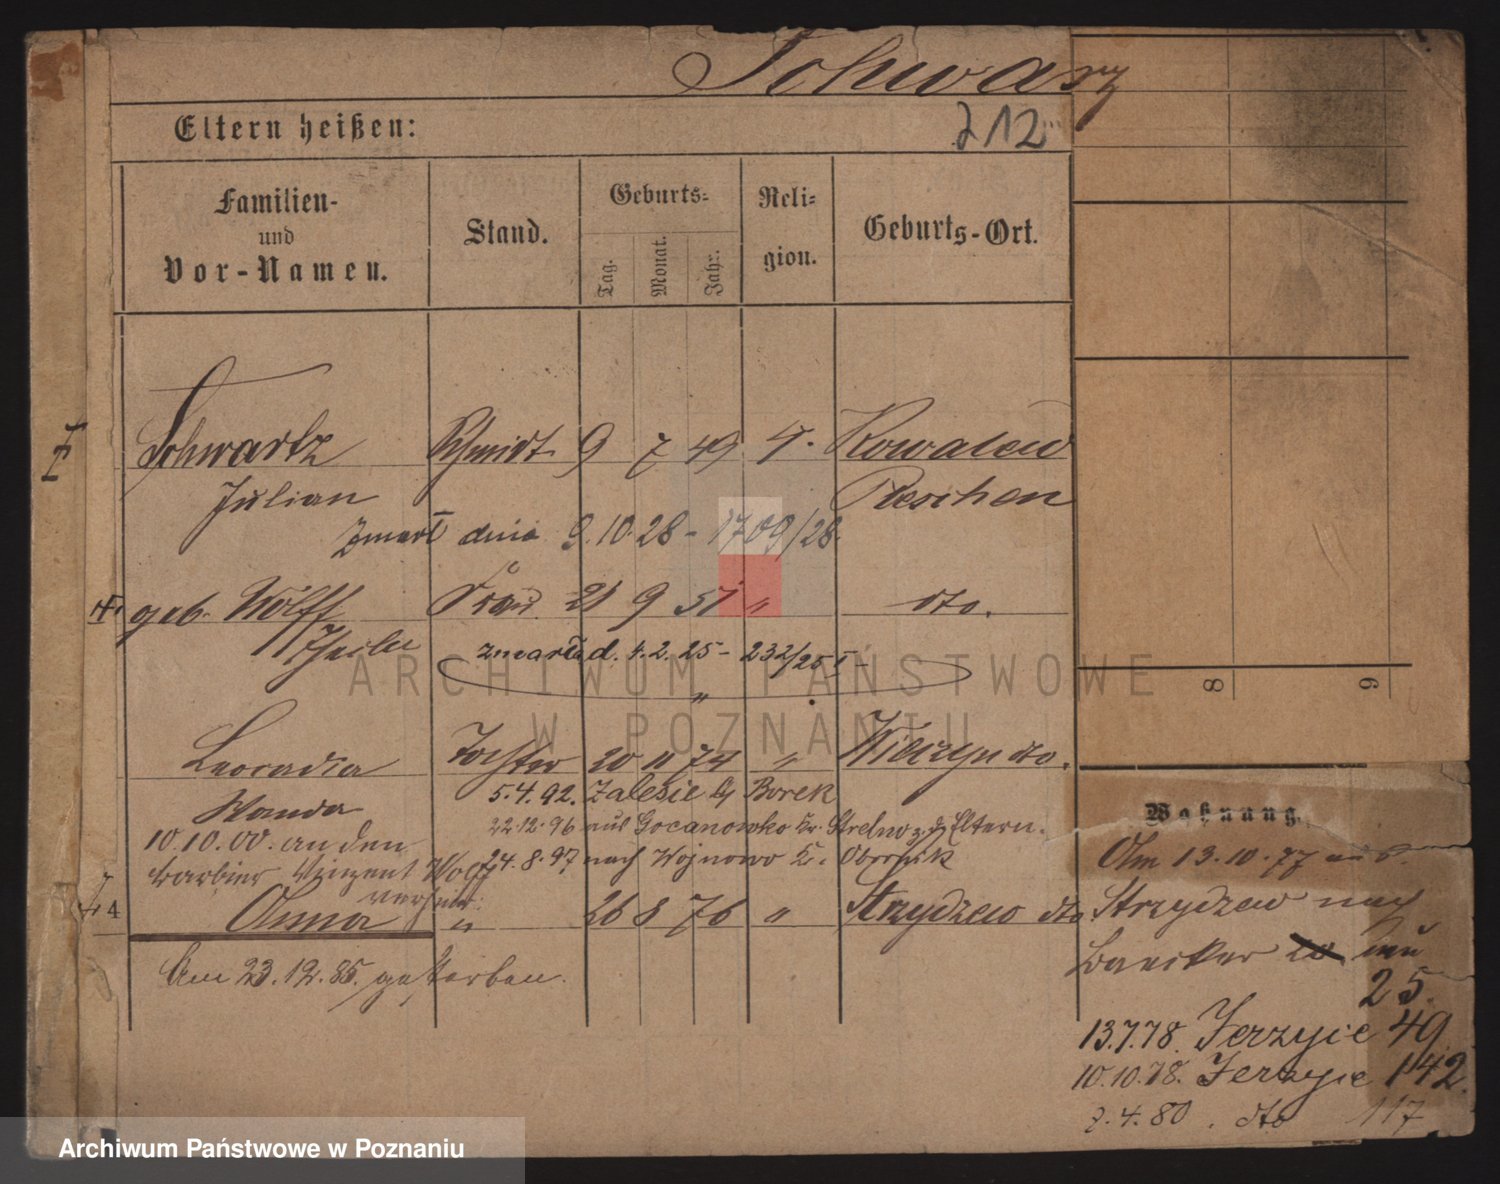 Schwarz
Eltern heißen:
212
Familien-
und
Vor-Namen.
Stand.
Geburts-
Tag.
Monat.
Jahr.
Reli-
gion.
Geburts-Ort.
Schwartz Schmidt 9 7 49 Kowalew
Julian Pleschen
zmarł dnia 9.10.28 - 1709/28.
geb. Wolff Frau. 21 9 51 " dto.
zmarła d. 4.2.25 - 232/25 I -
"
Leocadia Tochter 20 11 74 " Wilczyn dto.
5.4.92. Zalesie b/ Borek
Wanda
22.12.96 aus Gocanowko Kr. Strelno z. d. Eltern.
10.10.00. an den
24.8.97 nach Wojnowo Kr. Obornik
Barbier Vinzent Wolff
verheir.
4
Anna " 26 8 76 " Strzydzew dto
Am 23.12.85. gestorben.
8
9
Wohnung.
Am 13.10.77 aus
Strzydzew nach
25.
13.7.78. Jerzyce 49
10.10.78. Jerzyce 142.
2.4.80. dto 117
ARCHIWUM PAŃSTWOWE
W POZNANIU
Archiwum Państwowe w Poznaniu